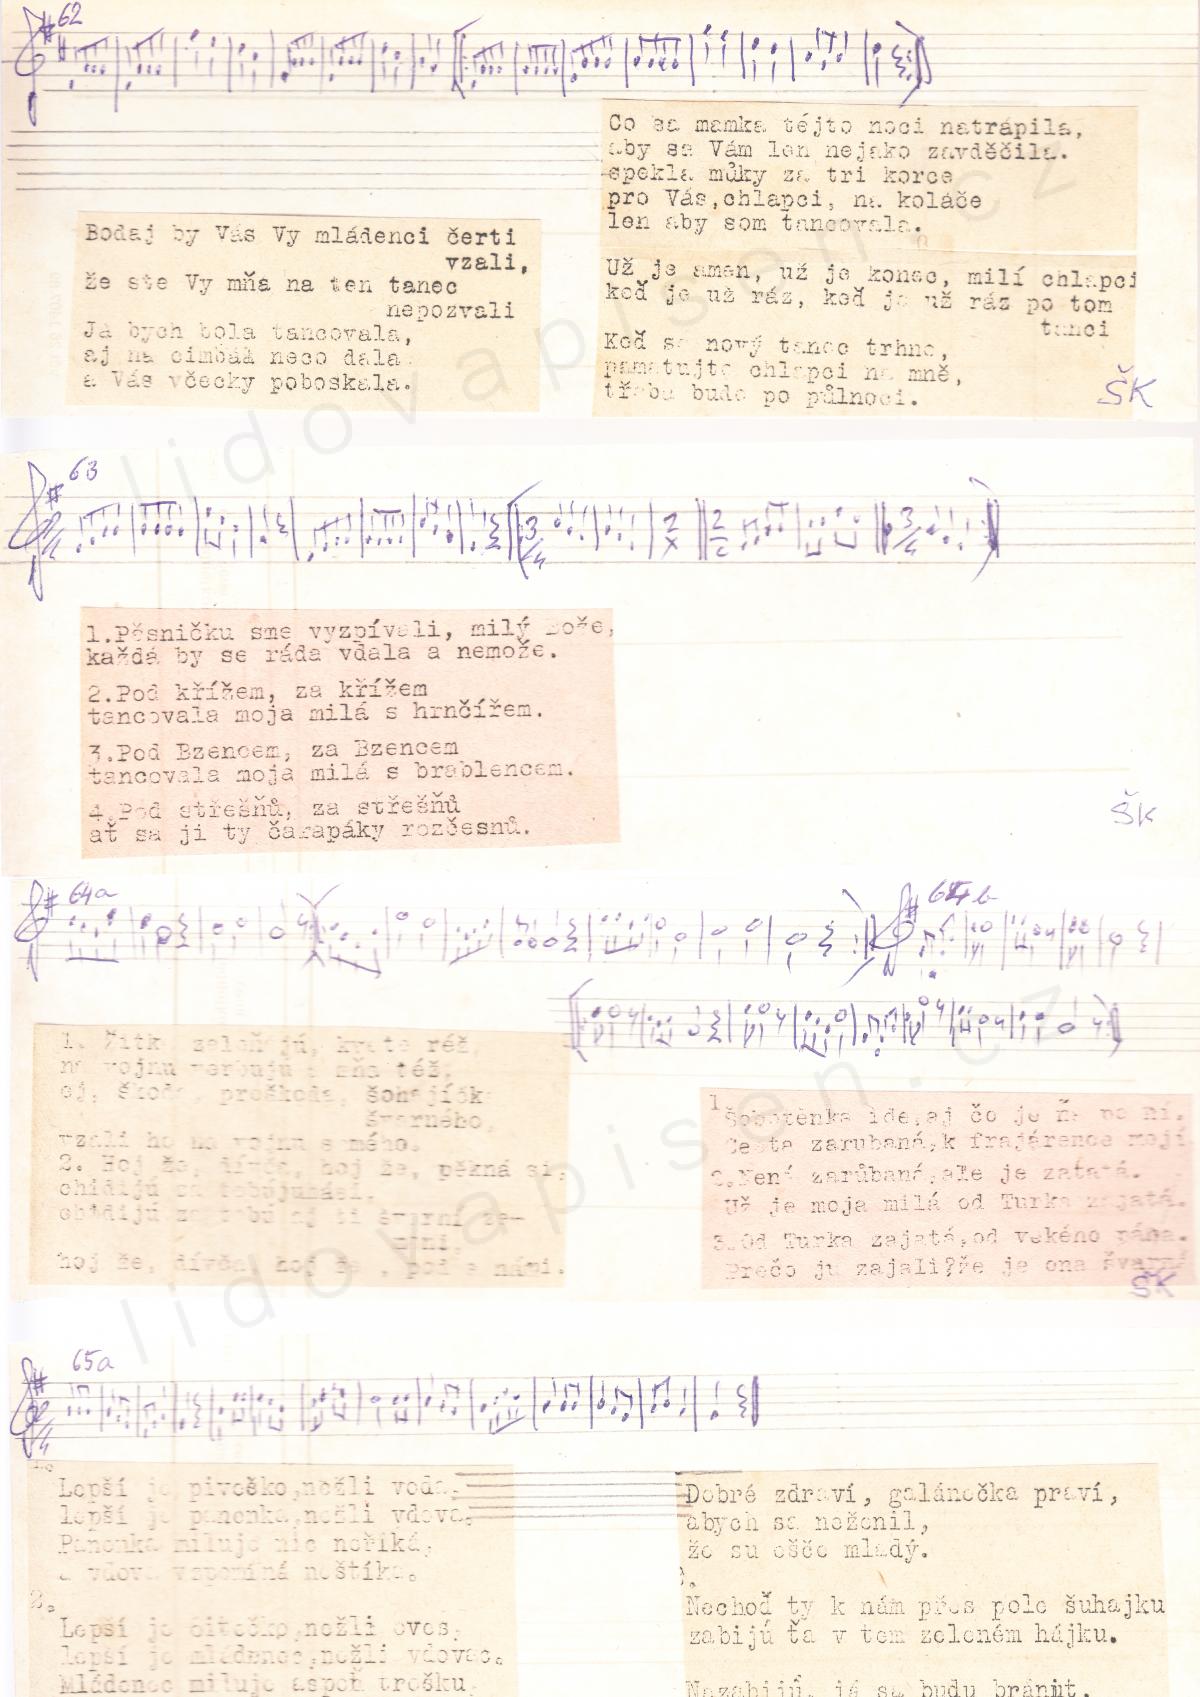 62
Bodaj by Vás Vy mládenci čerti
vzali,
že ste Vy mňa na ten tanec
nepozvali
Já bych bola tancovala,
aj na cimbál neco dala
a Vás včecky poboskala.
Co sa mamka téjto noci natrápila,
aby sa Vám len nejako zavděčila.
spekla můky za tri korce
pro Vás,chlapci, na koláče
len aby som tancovala.
Už je amen, už je konec, milí chlapci
keď je už ráz, keď je už ráz po tom
tanci
Keď sa nový tanec trhne,
pamatujte chlapci na mně,
třeba bude po půlnoci.
ŠK
63
1.Pěsničku sme vyzpívali, milý Bože,
každá by se ráda vdala a nemože.
2.Pod křížem, za křížem
tancovala moja milá s hrnčířem.
3.Pod Bzencem, za Bzencem
tancovala moja milá s brablencem.
4.Pod střešňů, za střešňů
ať sa ji ty čarapáky rozčesnů.
ŠK
64a
64b
1. Žitko zeleňajú, kvete réž
na vojnu verbujú a mňa též,
ej, škoda, preškoda, šohajíčka
švarného,
vzali ho na vojnu samého.
2. Hoj že, dívča, hoj že, pěkná si,
chidijú za
chidijú za tebú aj ti švarní ze-
mani,
hoj že, dívča, hoj že , poď s námi.
1
Šobotěnka ide,aj čo je ňa po ní.
Cesta zarubaná,k frajárence mojí
2.Není zarůbaná,ale je zatatá.
Už je moja milá od Turka zajatá.
3.Od Turka zajatá,od vekého pána.
Prečo ju zajali?že je ona švarná
ŠK
65a
1.
Lepší je pivečko,nežli voda,
lepší je panenka,nežli vdova.
Panenka miluje nic neříká,
a vdova vspomíná neštíka.
2.
Lepší je oitečko,nežli oves,
lepší je mládenec,nežli vdovec.
Mládenec miluje aspoň trošku,
Dobré zdraví, galánečka praví,
abych sa neženil,
že su ešče mladý.
2.
Nechoď ty k nám přes pole šuhajku
zabijú ťa v tem zeleném hájku.
Nazabijú, já sa budu bránit,